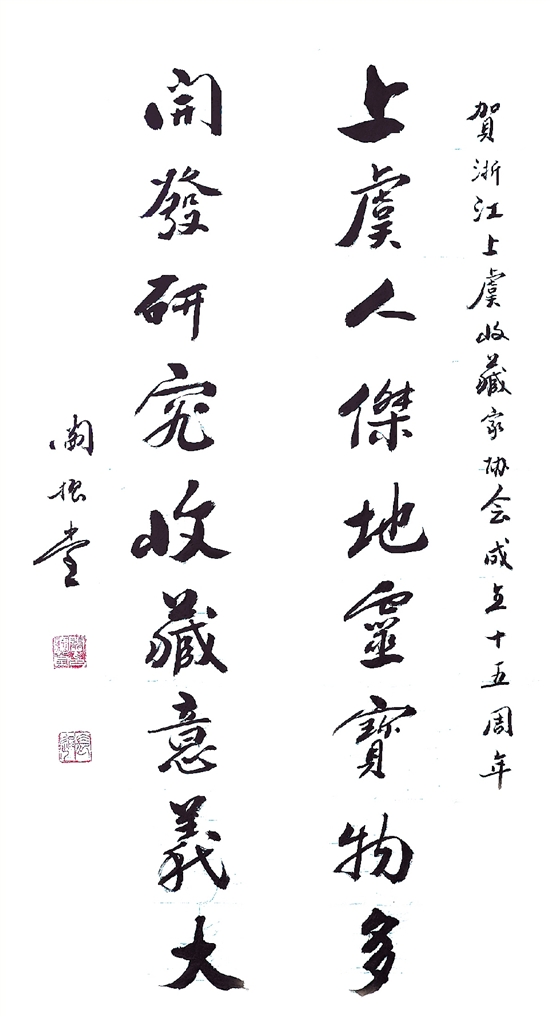 賀浙江上虞收藏家协会成立十五周年
上虞人傑地靈寶物多
開發研究收藏意義大
阚振堂